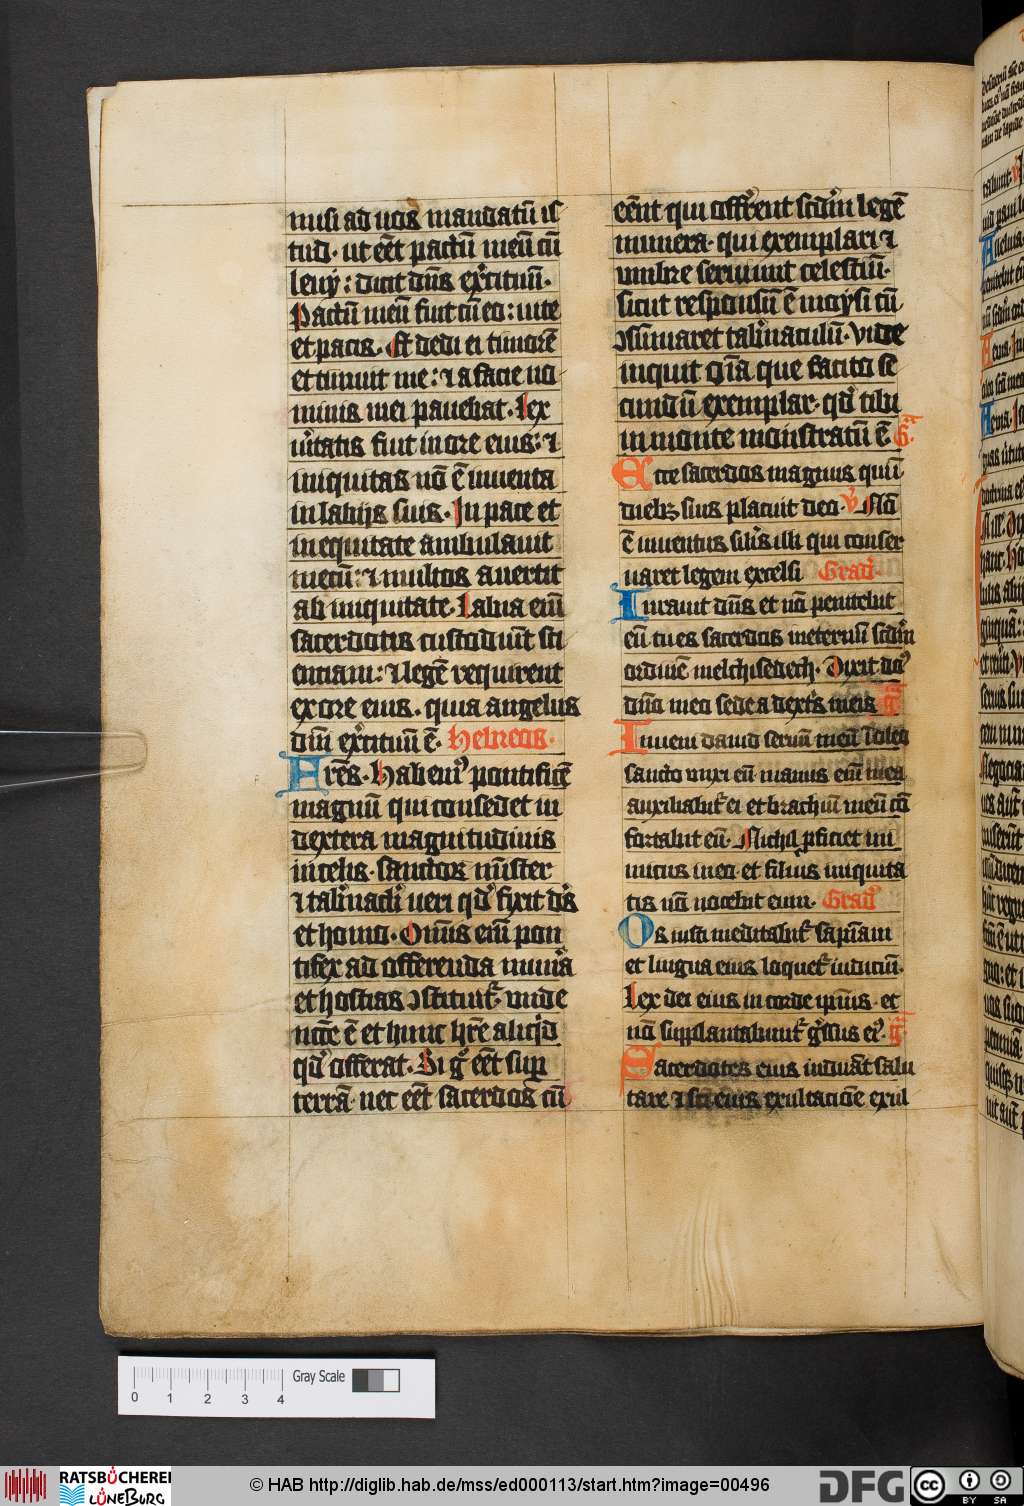 misi ad uos mandatū is
tud · ut eēt pactū meū cū
leuy : dicit dn̄s exercituū ·
Pactū meū fuit cū eo : uite
et pacis · Et dedi ei timorē
et timuit me : ⁊ a facie no
minis mei pauebat · Lex
ueritatis fuit in ore eius : ⁊
iniquitas nō ē inuenta
in labijs suis · In pace et
in equitate ambulauit
mecū : ⁊ multos auertit
ab iniquitate · Labia eī
sacerdotis custodiūt sci
entiam : ⁊ legē requirent
ex ore eius · quia angelus
dn̄i exercituū ē · Hebreos ·
Frēs · Habemꝰ pontificē
magnū qui consedet in
dextera magnitudinis
in celis · sanctoꝝ mīster
⁊ tabernacli ueri qd̓ fixit dꝰs
et homo · Omīs eī pon
tifex ad offerenda munera
et hostias ꝯstituit̄ · unde
necēe ē et hunc h̄re aliqd̓
qd̓ offerat · Si gͦ eēt sup
terrā · nec eēt sacerdos cū
eēnt qui offerent scdm̄ legē
munera · qui exemplari ⁊
umbre seruiunt celestiū ·
sicut responsū ē moysi cū
ꝯsūmaret tabernaculū · Vide
inquit om̄ia que facito se
cundū exemplar · qd̓ tibi
in monte monstratū ē · G
Ecce sacerdos magnus qui ī
diebꝫ suis placuit deo · V̓ Nō
ē inuentus silis illi qui conser
uaret legem excelsi Gradꝰ ·
Iurauit dn̄s et nō penitebit
eū tu es sacerdos ineternū scdm̄
ordinē melchisedech · Dixit dn̄s
dn̄o meo sede a dextris meis
Inueni dauid seruū meū oleo
sancto unxi eū manus eī mea
auxiliabit̄ ei et brachiū meū cō
fortabit eū · Nichil ꝓficiet ini
micus in eo · et filius iniquita
tis nō nocebit eum · Gradꝰ
Os iusti meditabit̄ sapīam
et lingua eius loquet̄ iudiciū ·
Lex dei eius in corde ipīus · et
nō supplantabunt̄ gressus eiꝰ ·
Sacerdotes eius induā̄t salu
tare ⁊ sc̄i eius exultacione exul
Gray Scale
0 1 2 3 4
RATSBÜCHEREI
LÜNEBURG
© HAB http://diglib.hab.de/mss/ed000113/start.htm?image=00496
DFG
cc BY SA